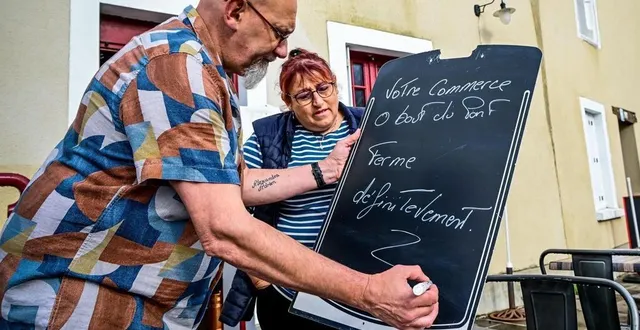 Votre Commerce
O bout du Pont
Ferme
définitevement.
Alexandre